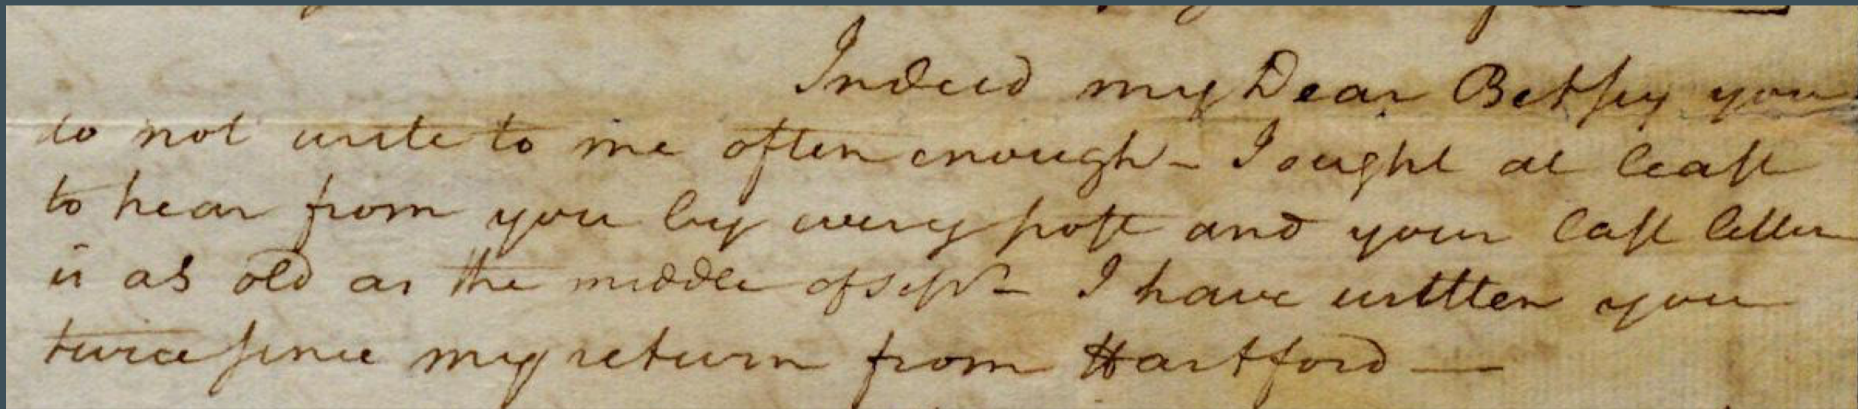 Indeed my Dear Betsey you
do not write to me often enough – I ought at least
to hear from you by every post and your last letter
is as old as the middle of Sepr – I have written you
twice since my return from Hartford —